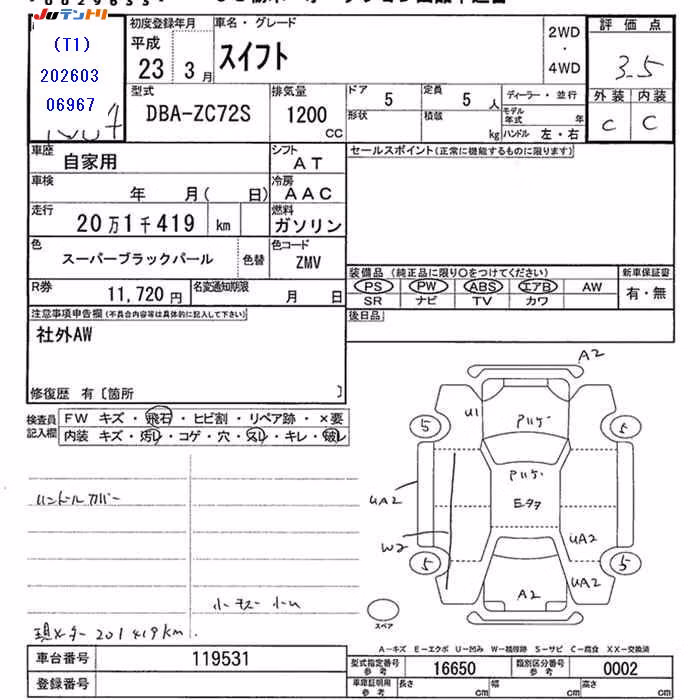 JUテントリ
(T1)
202603
06967
初度登録年月
平成
23 3月
車名・グレード
スイフト
2WD
・
4WD
評価点
3.5
外装 内装
C C
型式
DBA-ZC72S
排気量
1200
CC
ドア 5
定員 5 人
ディーラー・並行
形状
積載 kg
モデル年式 年
ハンドル 左・右
車歴
自家用
シフト
AT
セールスポイント(正常に機能するものに限ります)
車検
年 月( 日)
冷房
AAC
走行
20万1千419 km
燃料
ガソリン
色
スーパーブラックパール
色替
色コード
ZMV
装備品(純正品に限り○をつけてください)
新車保証書
PS PW ABS エアB AW
有・無
SR ナビ TV カワ
R券
11,720円
名変通知期限
月 日
注意事項申告欄(不具合内容等は具体的に記入して下さい)
後日品
社外AW
修復歴 有〔箇所 〕
検査員記入欄
FW キズ・飛石・ヒビ割・リペア跡・×要
内装 キズ・汚レ・コゲ・穴・スレ・キレ・破レ
ハンドルカバー
現メーター201419km.
A2
U1
Pハゲ
5
5
Pハゲ
Eタタ
UA2
W2
UA2
5
5
UA2
A2
スペア
A-キズ E-エクボ U-凹み W-補修跡 S-サビ C-腐食 XX-交換済
車台番号
119531
型式指定番号参考
16650
類別区分番号参考
0002
登録番号
車庫証明用参考
長さ cm
幅 cm
高さ cm